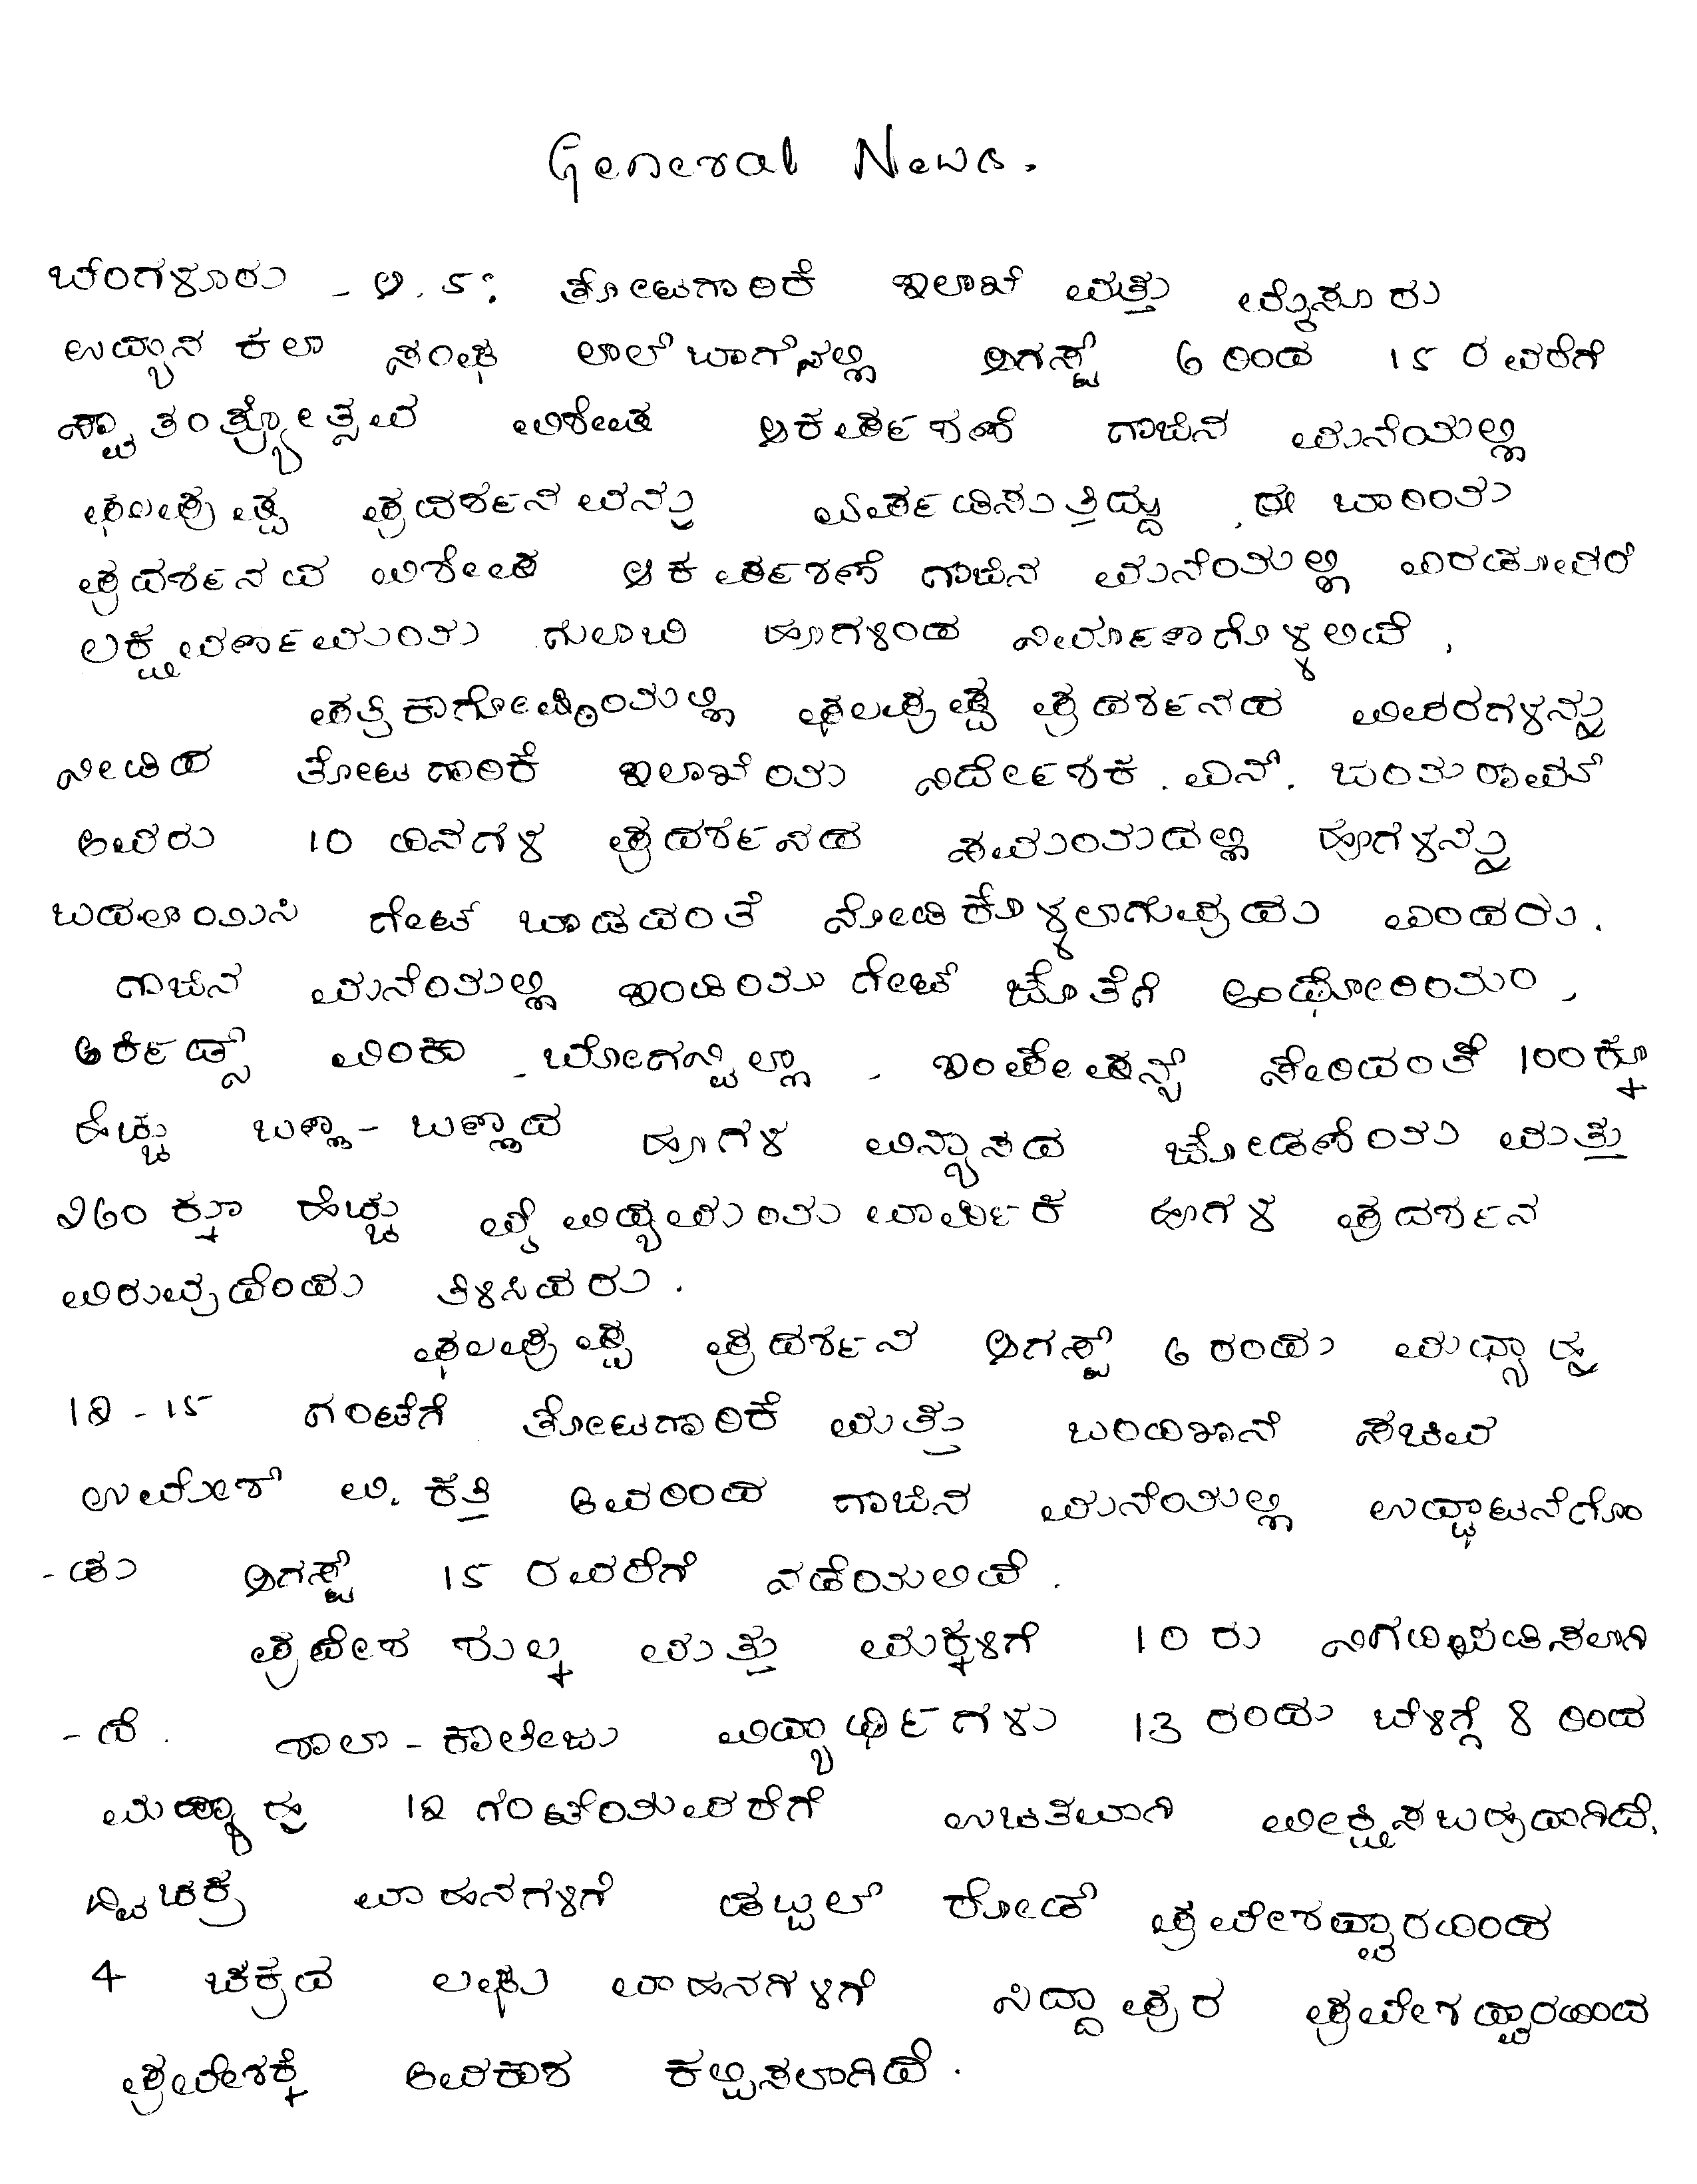 General News.
ಬೆಂಗಳೂರು - ಆ. ೫: ತೋಟಗಾರಿಕೆ ಇಲಾಖೆ ಮತ್ತು ಮೈಸೂರು
ಉದ್ಯಾನ ಕಲಾ ಸಂಘ ಲಾಲ್‌ಬಾಗ್‌ನಲ್ಲಿ ಆಗಸ್ಟ್ 6 ರಿಂದ 15 ರವರೆಗೆ
ಸ್ವಾತಂತ್ರ್ಯೋತ್ಸವ ವಿಶೇಷ ಆಕರ್ಷಣೆ ಗಾಜಿನ ಮನೆಯಲ್ಲಿ
ಫಲಪುಷ್ಪ ಪ್ರದರ್ಶನವನ್ನು ಏರ್ಪಡಿಸುತ್ತಿದ್ದು, ಈ ಬಾರಿಯ
ಪ್ರದರ್ಶನದ ವಿಶೇಷ ಆಕರ್ಷಣೆ ಗಾಜಿನ ಮನೆಯಲ್ಲಿ
ಗುಲಾಬಿ ಹೂಗಳಿಂದ ನಿರ್ಮಾಣಗೊಳ್ಳಲಿದೆ.
ಪತ್ರಿಕಾಗೋಷ್ಠಿಯಲ್ಲಿ ಫಲಪುಷ್ಪ ಪ್ರದರ್ಶನದ ವಿವರಗಳನ್ನು
ನೀಡಿದ ತೋಟಗಾರಿಕೆ ಇಲಾಖೆಯ ನಿರ್ದೇಶಕ. ಎನ್. ಜಯರಾಮ್
ಅವರು 10 ದಿನಗಳ ಪ್ರದರ್ಶನದ ಸಮಯದಲ್ಲಿ ಹೂಗಳನ್ನು
ಬದಲಾಯಿಸಿ ಗೇಟ್ ಬಾಡದಂತೆ ನೋಡಿಕೊಳ್ಳಲಾಗುವುದು ಎಂದರು.
ಗಾಜಿನ ಮನೆಯಲ್ಲಿ ಇಂಡಿಯಾ ಗೇಟ್ ಜೊತೆಗೆ ಆಂಥೋರಿಯಂ,
ಆರ್ಕಿಡ್ಸ್ ವಿಂಕಾ - ಬೋಗನ್ವಿಲ್ಲಾ - ಇಂಪೇಷನ್ಸ್ ಸೇರಿದಂತೆ 100ಕ್ಕೂ
ಹೆಚ್ಚು ಬಣ್ಣ - ಬಣ್ಣದ ಹೂಗಳ ವಿನ್ಯಾಸದ ಜೋಡಣೆಯ ಮತ್ತು
೨60 ಕ್ಕೂ ಹೆಚ್ಚು ವೈವಿಧ್ಯಮಯ ವಾರ್ಷಿಕ ಹೂಗಳ ಪ್ರದರ್ಶನ
ವಿರುವುದೆಂದು ತಿಳಿಸಿದರು.
ಫಲಪುಷ್ಪ ಪ್ರದರ್ಶನ ಆಗಸ್ಟ್ 6 ರಂದು ಮಧ್ಯಾಹ್ನ
1೨-15 ಗಂಟೆಗೆ ತೋಟಗಾರಿಕೆ ಮತ್ತು ಬಂದಿಖಾನೆ ಸಚಿವ
ಉಮೇಶ್ ವಿ. ಕತ್ತಿ ಅವರಿಂದ ಗಾಜಿನ ಮನೆಯಲ್ಲಿ ಉದ್ಘಾಟನೆಗೊಂ
-ಡು ಆಗಸ್ಟ್ 15 ರವರೆಗೆ ನಡೆಯಲಿದೆ.
ಪ್ರವೇಶ ಶುಲ್ಕ ಮತ್ತು ಮಕ್ಕಳಿಗೆ 10 ರು ನಿಗದಿಪಡಿಸಲಾಗಿ
-ದೆ. ಶಾಲಾ - ಕಾಲೇಜು ವಿದ್ಯಾರ್ಥಿಗಳು 13 ರಂದು ಬೆಳಿಗ್ಗೆ 8 ರಿಂದ
ಮಧ್ಯಾಹ್ನ 1೨ ಗಂಟೆಯವರೆಗೆ ಉಚಿತವಾಗಿ ವೀಕ್ಷಿಸಬಹುದಾಗಿದೆ.
ದ್ವಿಚಕ್ರ ವಾಹನಗಳಿಗೆ ಡಬ್ಬಲ್ ರೋಡ್ ಪ್ರವೇಶದ್ವಾರದಿಂದ
4 ಚಕ್ರದ ಲಘು ವಾಹನಗಳಿಗೆ ಸಿದ್ದಾಪುರ ಪ್ರವೇಶದ್ವಾರದಿಂದ
ಪ್ರವೇಶಕ್ಕೆ ಅವಕಾಶ ಕಲ್ಪಿಸಲಾಗಿದೆ.